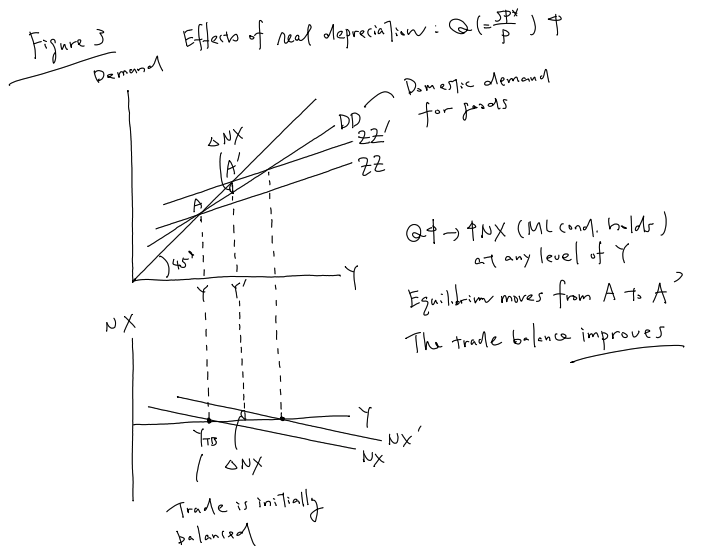 Figure 3
Effects of real depreciation : Q (= SP*/P) ↑
Demand
Domestic demand
for goods
DD
ZZ'
ZZ
ΔNX
A'
A
45°
Y
Y'
Y
Q↑ → ↑NX (ML cond. holds)
at any level of Y
Equilibrim moves from A to A'
The trade balance improves
NX
Y
Y_TB
ΔNX
NX'
NX
Trade is initially
balanced